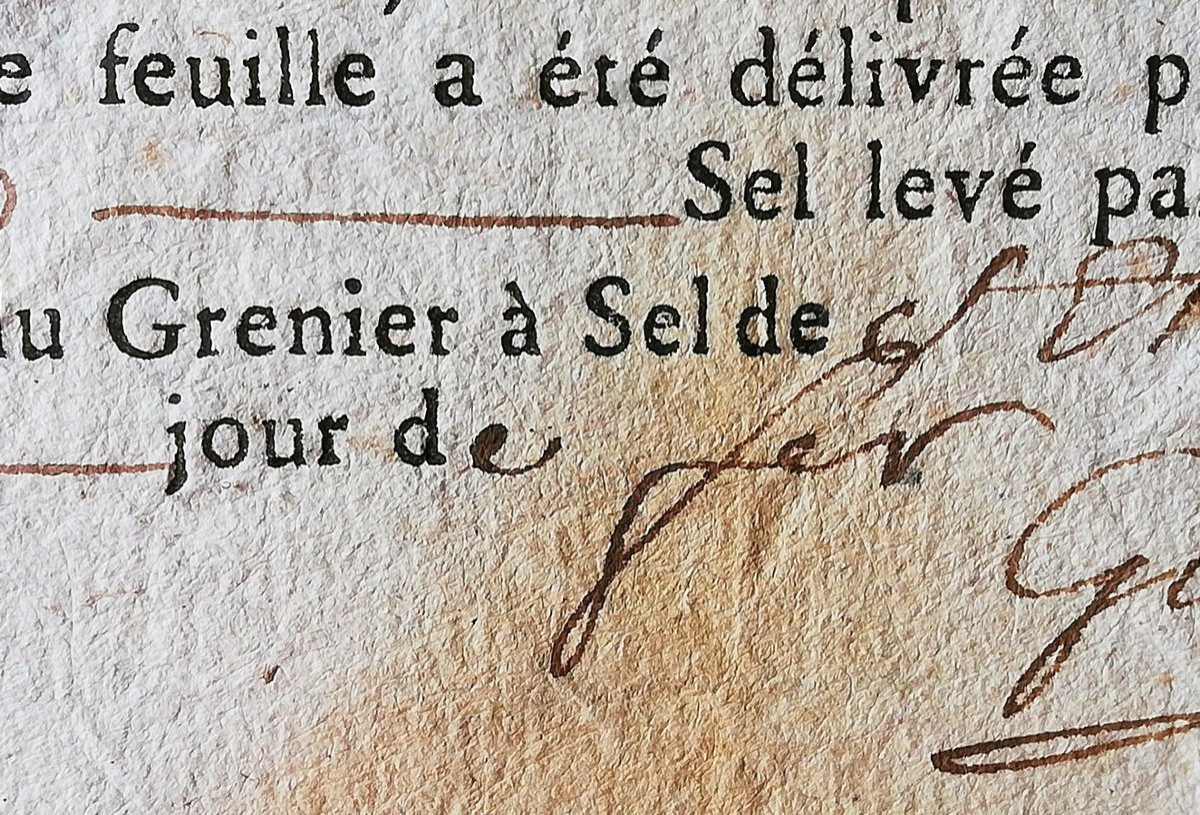 e feuille a été délivrée p
Sel levé pa
au Grenier à Sel de
jour de fev